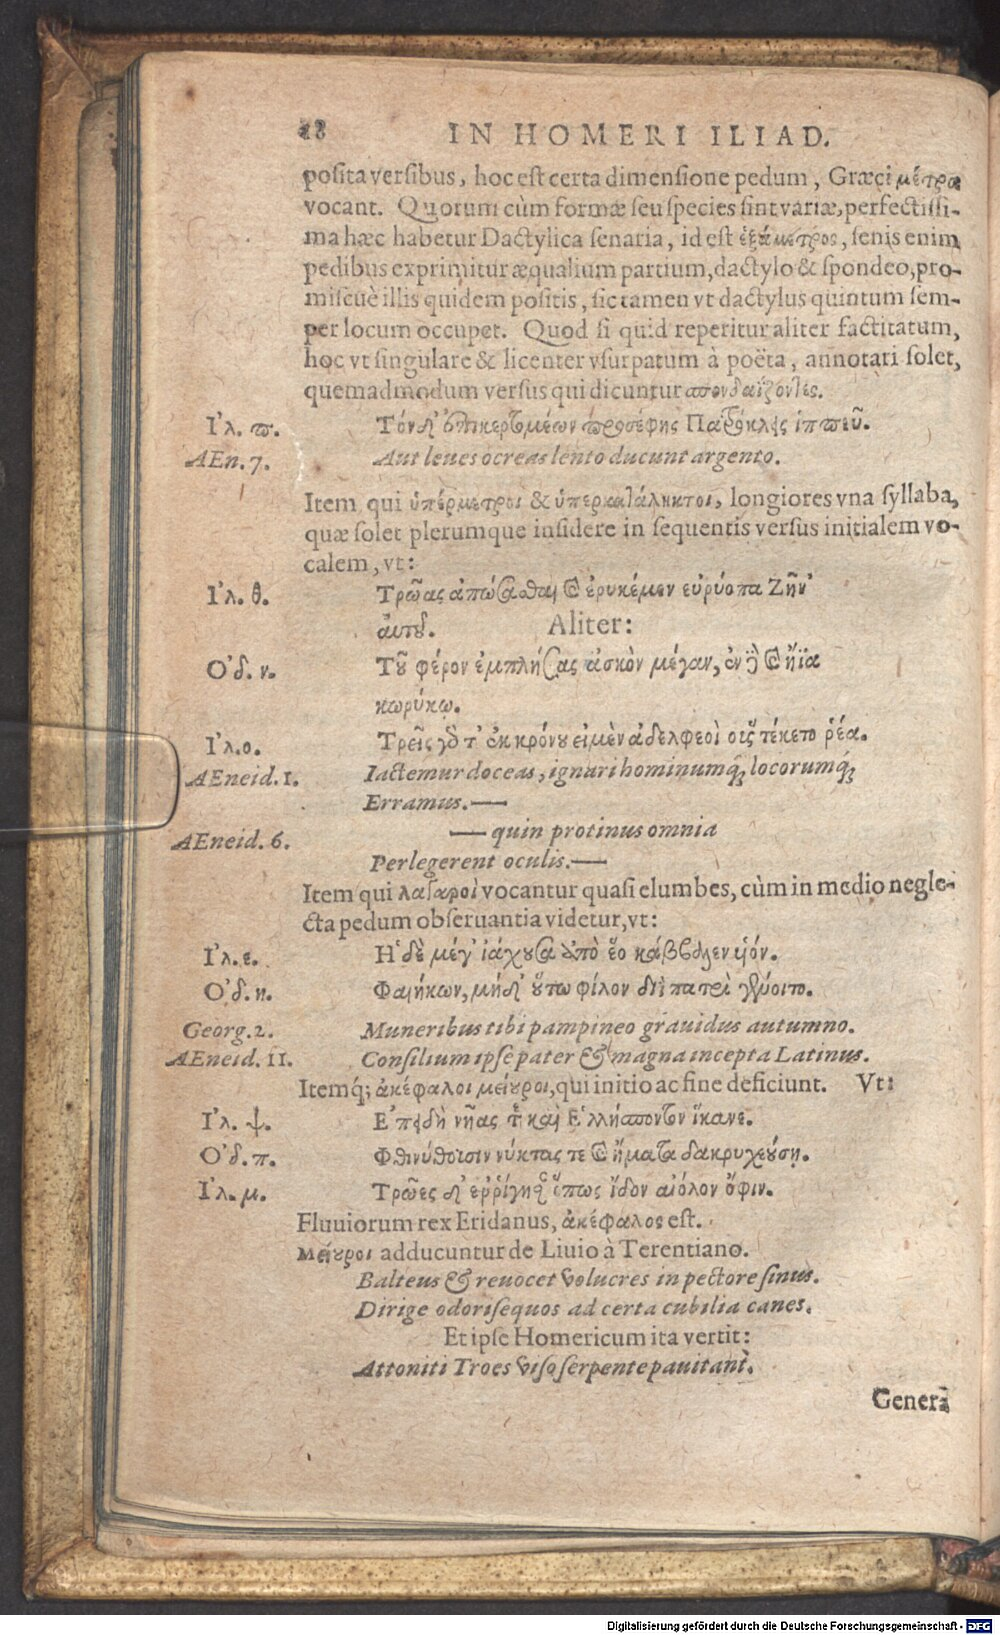 28 IN HOMERI ILIAD.
posita versibus, hoc est certa dimensione pedum, Græci μέτρα
vocant. Quorum cùm formæ seu species sint variæ, perfectissi-
ma hæc habetur Dactylica senaria, id est ἑξάμετρος, senis enim
pedibus exprimitur æqualium partium, dactylo & spondeo, pro-
miscuè illis quidem positis, sic tamen vt dactylus quintum sem-
per locum occupet. Quod si quid reperitur aliter factitatum,
hoc vt singulare & licenter vsurpatum à poëta, annotari solet,
quemadmodum versus qui dicuntur σπονδαΐζοντες.
Ἰλ. π. Τόνδ' ἐπικερτομέων προσέφης Πατρόκλεις ἱππεῦ.
AEn. 7. Aut leues ocreas lento ducunt argento.
Item qui ὑπέρμετροι & ὑπερκατάληκτοι, longiores vna syllaba,
quæ solet plerumque insidere in sequentis versus initialem vo-
calem, vt:
Ἰλ. θ. Τρῶας ἀπώσασθαι καὶ ἐρυκέμεν εὐρύοπα Ζῆν'
ἀυτοῦ. Aliter:
Ὀδ. ν. Τοῦ φέρον ἐμπλήσας ἀσκὸν μέγαν, ἐν δὲ καὶ ἤϊα
κωρύκῳ.
Ἰλ. ο. Τρεῖς γὰρ τ' ἐκ κρόνου εἰμὲν ἀδελφεοὶ οὓς τέκετο ῥέα.
AEneid. 1. Iactemur doceas, ignari hominumq́; locorumq́;
Erramus.—
AEneid. 6. — quin protinus omnia
Perlegerent oculis.—
Item qui λαγαροὶ vocantur quasi elumbes, cùm in medio negle-
cta pedum obseruantia videtur, vt:
Ἰλ. ε. Ἡ δὲ μέγ' ἰάχουσα ἀπὸ ἕο κάββαλεν υἱόν.
Ὀδ. η. Φαιήκων, μηδ' οὕτω φίλον διῒ πατρὶ γένοιτο.
Georg. 2. Muneribus tibi pampineo grauidus autumno.
AEneid. 11. Consilium ipse pater & magna incepta Latinus.
Itemq́; ἀκέφαλοι μείουροι, qui initio ac fine deficiunt. Vt:
Ἰλ. ψ. Ἐπειδὴ νῆας τε καὶ Ἑλλήσποντον ἵκανε.
Ὀδ. π. Φθινύθουσιν νύκτας τε καὶ ἤματα δακρυχεούσῃ.
Ἰλ. μ. Τρῶες δ' ἐῤῥίγησαν ὅπως ἴδον αἰόλον ὄφιν.
Fluuiorum rex Eridanus, ἀκέφαλος est.
μείουροι adducuntur de Liuio à Terentiano.
Balteus & reuocet volucres in pectore sinus.
Dirige odorisequos ad certa cubilia canes.
Et ipse Homericum ita vertit:
Attoniti Troes viso serpente pauitant.
Genera
Digitalisierung gefördert durch die Deutsche Forschungsgemeinschaft - DFG